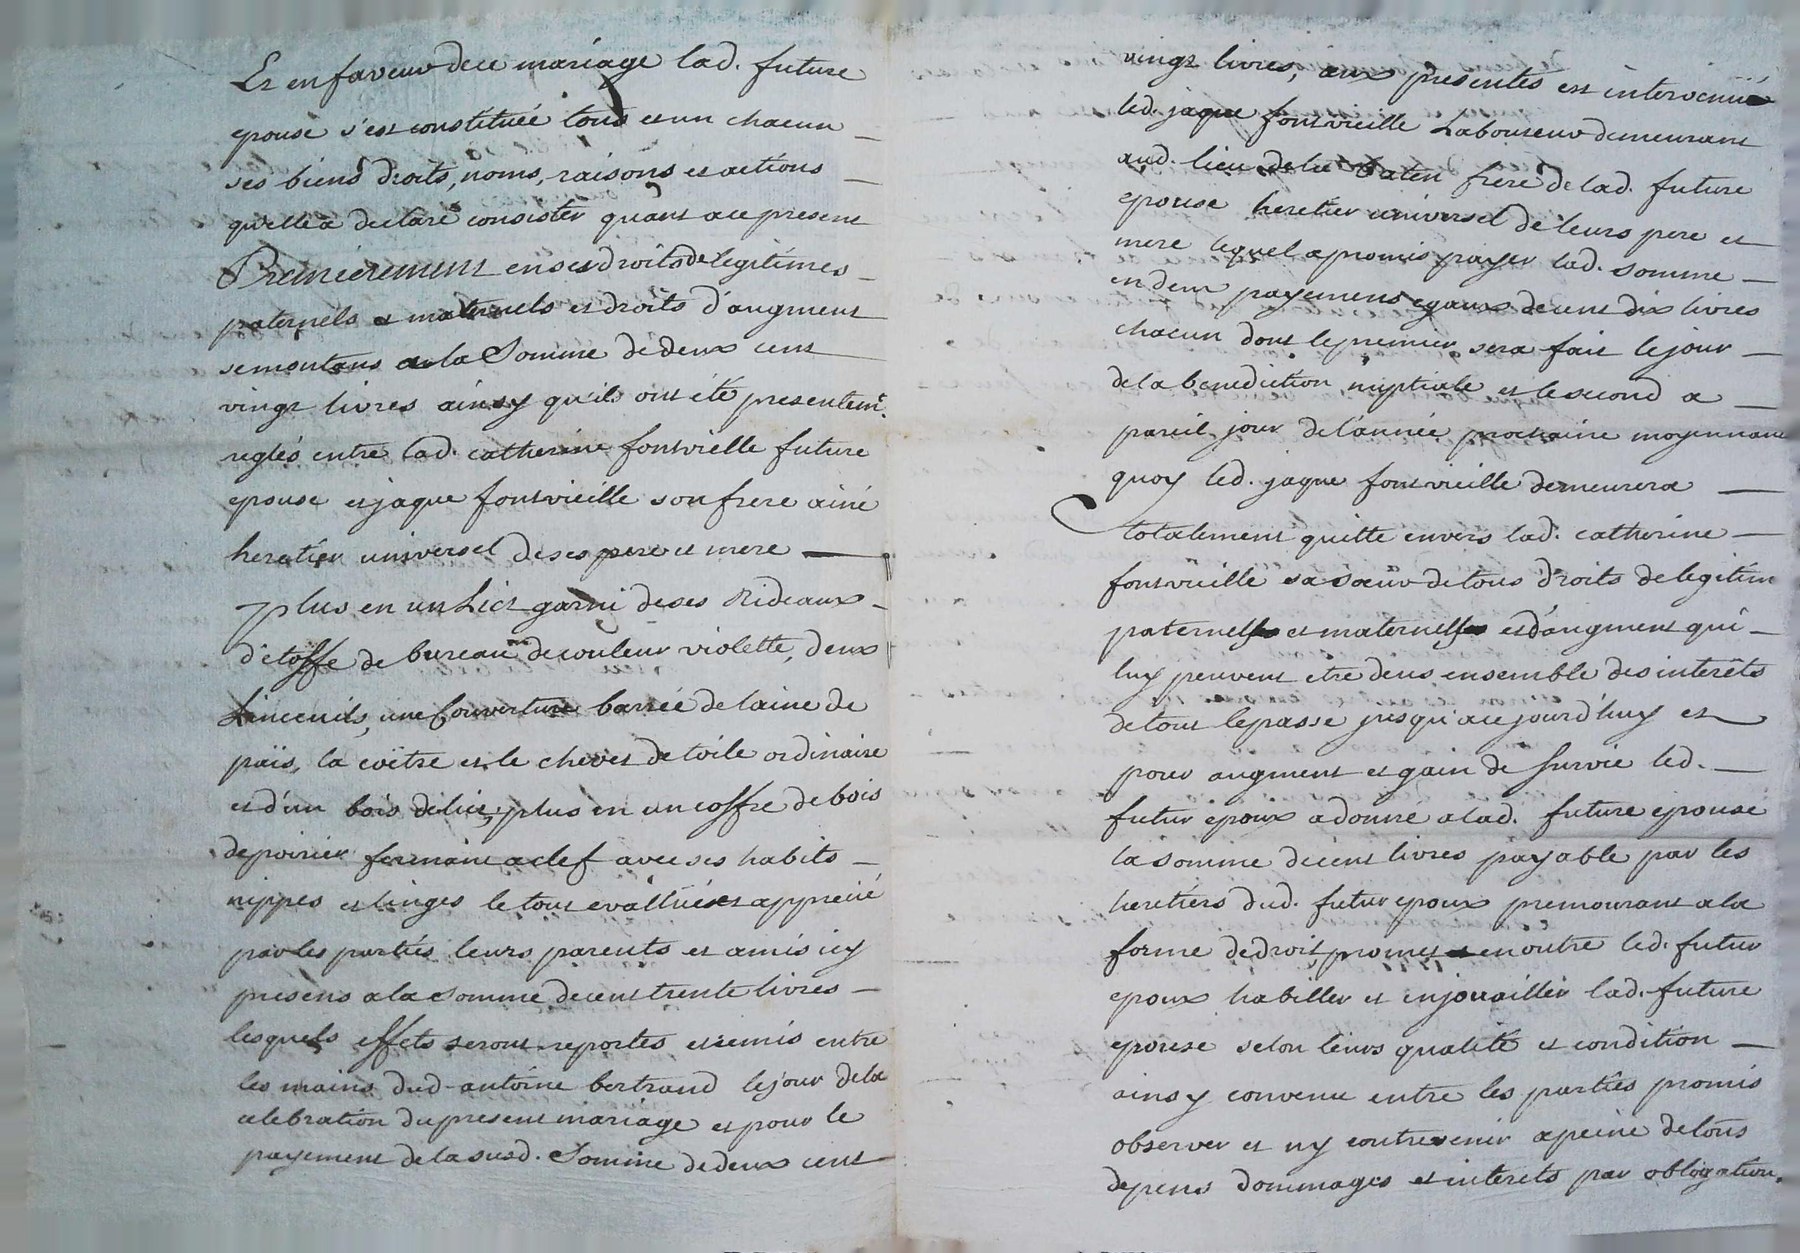 Et en faveur de ce mariage lad. future
epouse s'est constituée tous et un chacun
ses biens droits, noms, raisons et actions
qu'elle a declaré consister quant a ce present
Premierement en ses droits de legitimes
paternels et maternels et droits d'augment
se montans a la Somme de deux cent
vingt livres ainsy qu'il ont été presentemt.
reglés entre lad. catherine fontvielle future
epouse et jaque fontvieille son frere ainé
heretier universel de ses pere et mere
plus en un Lict garni de ses Rideaux
d'etoffe de bureau de couleur violette, deux
Linceuils, une Couverture barrée de laine de
païs, la coëtre et le chevet de toile ordinaire
et d'un bois de lict, plus en un coffre de bois
de poirier fermant a clef avec ses habits
nippes et linges le tout evallué et apprecié
par les parties leurs parents et amis icy
presens a la somme de cent trente livres
lesquels effets seront reportés et remis entre
les mains dud. antoine bertrand le jour de la
celebration du present mariage et pour le
payement de la susd. Somme de deux cent
vingt livres, aux presentes est intervenu
led. jaque fontvieille Laboureur demeurant
aud. lieu de la frere de lad. future
epouse heretier universel de leurs pere et
mere lequel a promis payer lad. somme
en deux payemens egaux de cent dix livres
chacun dont le premier sera fait le jour
de la benediction nuptiale et le second a
pareil jour de l'année prochaine moyennant
quoy led. jaque fontvieille demeurera
totalement quitte envers lad. catherine
fontvieille sa sœur de tous droits de legitim
paternels et maternels et d'augment qui
luy peuvent etre deus ensemble des interêts
de tout le passe jusqu'a ce jourd'huy et
pour augment et gain de Survie led.
futur epoux a donné a lad. future epouse
la somme de cent livres payable par les
heretiers dud. futur epoux premourant a la
forme de droit, promet en outre led. futur
epoux habiller et enjouailler lad. future
epouse selon leurs qualité et condition
ainsy convenu entre les parties promis
observer et ny contrevenir a peine de tous
depens dommages et interets par obligation.